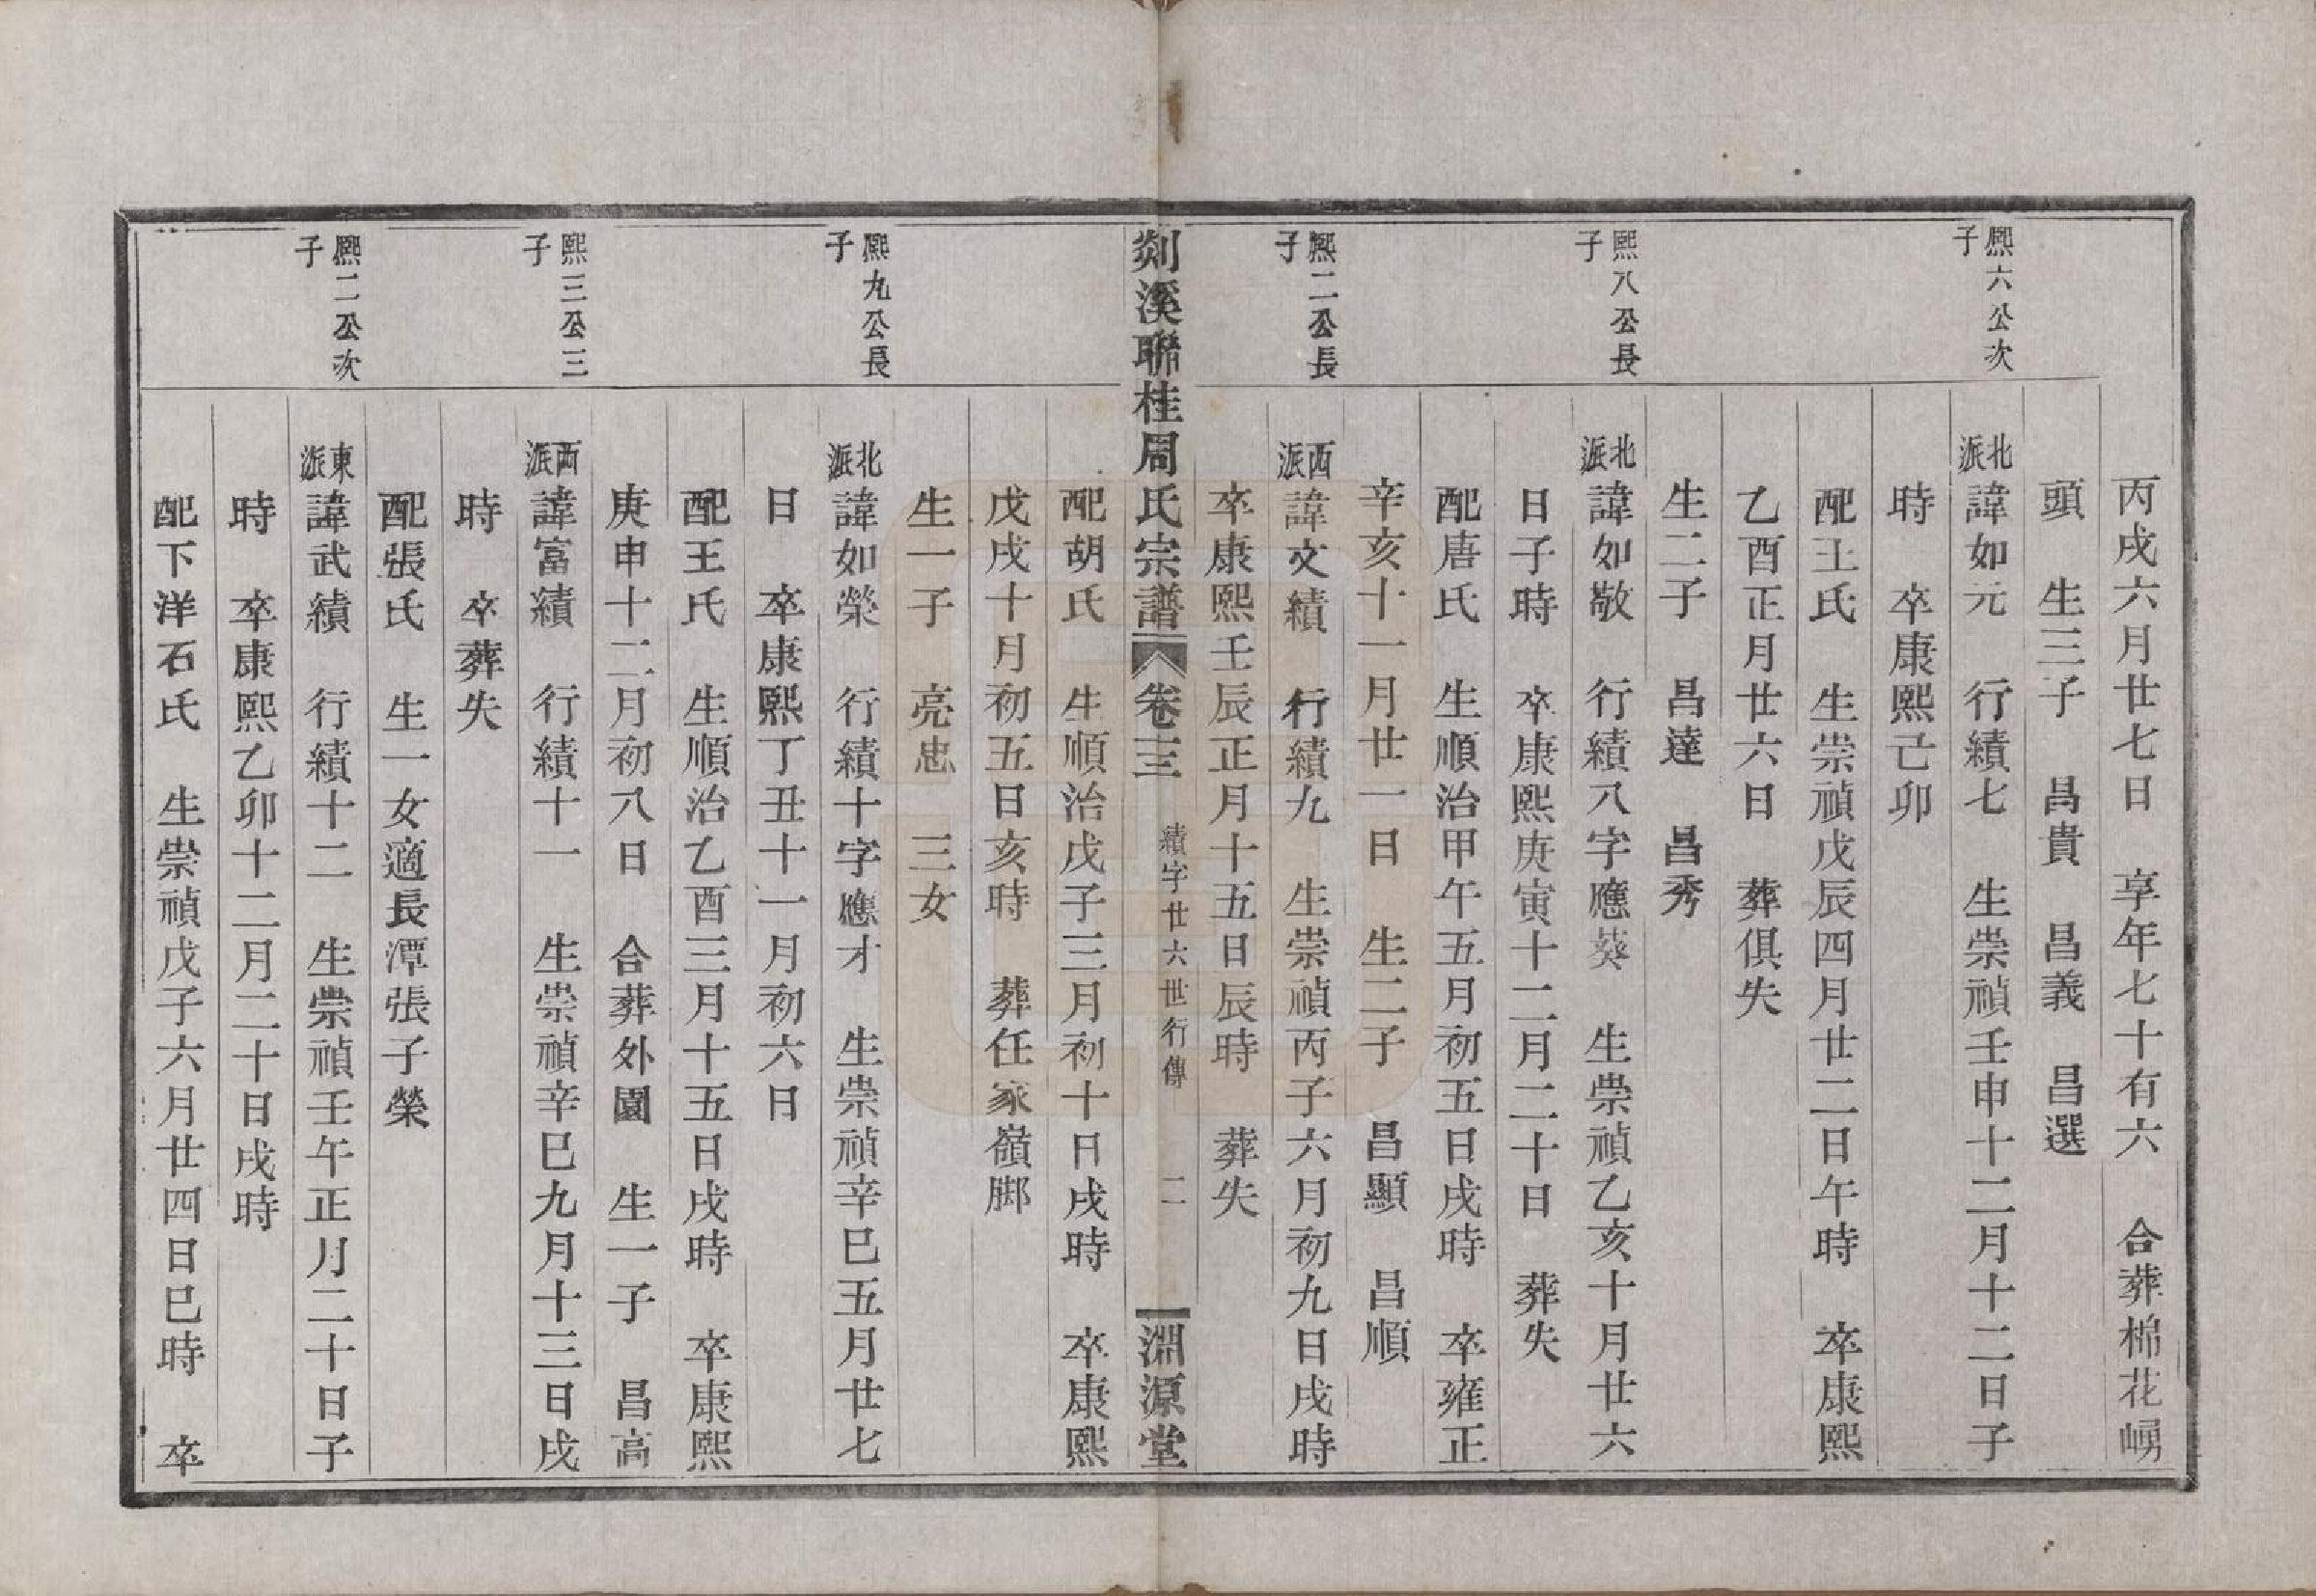 丙戌六月廿七日　享年七十有六　合葬棉花嵊
頭　生三子　昌貴　昌義　昌選
熈六公次
子
北派諱如元　行績七　生崇禎壬申十二月十二日子
時　卒康熙己卯
配王氏　生崇禎戊辰四月廿二日午時　卒康熙
乙酉正月廿六日　葬俱失
生二子　昌達　昌秀
熙八公長
子
北派諱如敬　行績八字應葵　生崇禎乙亥十月廿六
日子時　卒康熙庚寅十二月二十日　葬失
配唐氏　生順治甲午五月初五日戌時　卒雍正
辛亥十一月廿一日　生二子　昌顯　昌順
熈二公長
子
西派諱文績　行績九　生崇禎丙子六月初九日戌時
卒康熙壬辰正月十五日辰時　葬失
剡溪聯桂周氏宗譜　卷三　績字廿六世行傳　二　淵源堂
配胡氏　生順治戊子三月初十日戌時　卒康熙
戊戌十月初五日亥時　葬任家嶺脚
生一子　亮忠　三女
熈九公長
子
北派諱如榮　行績十字應才　生崇禎辛巳五月廿七
日　卒康熙丁丑十一月初六日
配王氏　生順治乙酉三月十五日戌時　卒康熙
庚申十二月初八日　合葬外園　生一子　昌高
熙三公三
子
西派諱富績　行績十一　生崇禎辛巳九月十三日戌
時　卒葬失
配張氏　生一女適長潭張子榮
熈二公次
子
東派諱武績　行績十二　生崇禎壬午正月二十日子
時　卒康熙乙卯十二月二十日戌時
配下洋石氏　生崇禎戊子六月廿四日巳時　卒